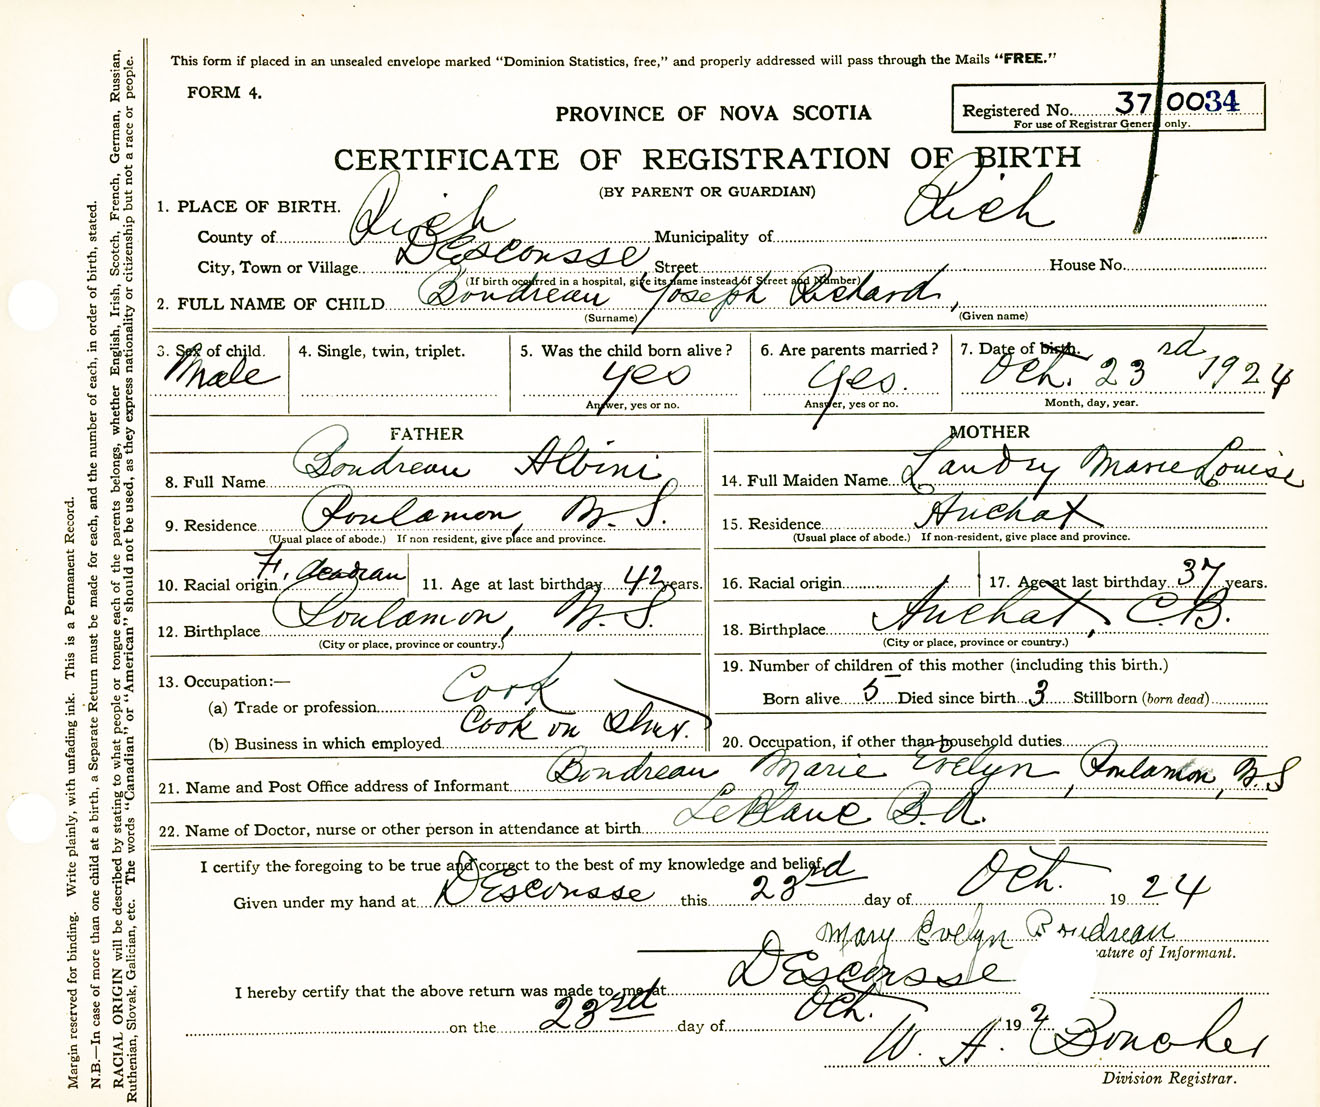 This form if placed in an unsealed envelope marked “Dominion Statistics, free,” and properly addressed will pass through the Mails “FREE.”
FORM 4.
PROVINCE OF NOVA SCOTIA
Registered No. 37 0034
For use of Registrar General only.
CERTIFICATE OF REGISTRATION OF BIRTH
(BY PARENT OR GUARDIAN)
1. PLACE OF BIRTH.
County of Rich Municipality of Rich
City, Town or Village Descousse Street House No.
(If birth occurred in a hospital, give its name instead of Street and Number)
2. FULL NAME OF CHILD Boudreau Joseph Richard,
(Surname) (Given name)
3. Sex of child. 4. Single, twin, triplet. 5. Was the child born alive? 6. Are parents married? 7. Date of birth.
Male yes yes. Oct. 23rd 1924
Answer, yes or no. Answer, yes or no. Month, day, year.
FATHER MOTHER
8. Full Name Boudreau Albini 14. Full Maiden Name Landry Marie Louise
9. Residence Poulamon, N. S. 15. Residence Arichat
(Usual place of abode.) If non resident, give place and province. (Usual place of abode.) If non-resident, give place and province.
10. Racial origin Fr. Acadian 11. Age at last birthday 42 years. 16. Racial origin 17. Age at last birthday 37 years.
12. Birthplace Poulamon, N. S. 18. Birthplace Arichat, C.B.
(City or place, province or country.) (City or place, province or country.)
13. Occupation:— 19. Number of children of this mother (including this birth.)
(a) Trade or profession Cook Born alive 5 Died since birth 3 Stillborn (born dead)
(b) Business in which employed Cook on 20. Occupation, if other than household duties
21. Name and Post Office address of Informant Boudreau Marie Evelyn, Poulamon, N. S
22. Name of Doctor, nurse or other person in attendance at birth LeBlanc B. A.
I certify the foregoing to be true and correct to the best of my knowledge and belief.
Given under my hand at Descousse this 23rd day of Oct. 1924
Mary Evelyn Boudreau
ature of Informant.
I hereby certify that the above return was made to me at Descousse
on the 23rd day of Oct. 192
W. A.
Division Registrar.
Margin reserved for binding. Write plainly, with unfading ink. This is a Permanent Record.
N.B.—In case of more than one child at a birth, a Separate Return must be made for each, and the number of each, in order of birth, stated.
RACIAL ORIGIN will be described by stating to what people or tongue each of the parents belongs, whether English, Irish, Scotch, French, German, Russian,
Ruthenian, Slovak, Galician, etc. The words “Canadian” or “American” should not be used, as they express nationality or citizenship but not a race or people.